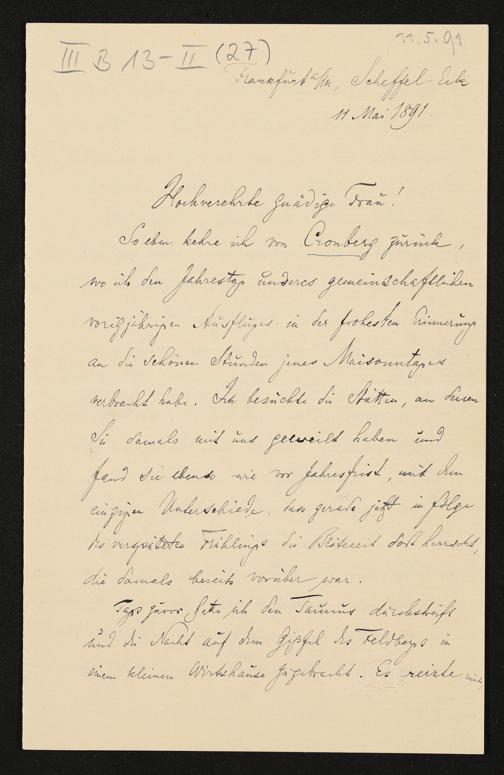 III B 13-II (27)
11.5.91
Frankfurt a/M, Scheffel-Eck
11 Mai 1891.
Hochverehrte gnädige Frau!
Soeben kehre ich von Cronberg zurück,
wo ich den Jahrestag unseres gemeinschaftlichen
vorigjährigen Ausfluges in der frohesten Erinnerung
an die schönen Stunden jenes Maisonntages
verbracht habe. Ich besuchte die Stätten, an denen
Sie damals mit uns geweilt haben und
fand sie ebenso wie vor Jahresfrist, mit dem
einzigen Unterschiede, dass gerade jetzt in folge
des verspäteten Frühlings die Blütezeit dort herrscht,
die damals bereits vorüber war.
Tags zuvor hatte ich den Taunus durchstreift
und die Nacht auf dem Gipfel des Feldbergs in
einem kleinen Wirtshause zugebracht. Es reizte mich